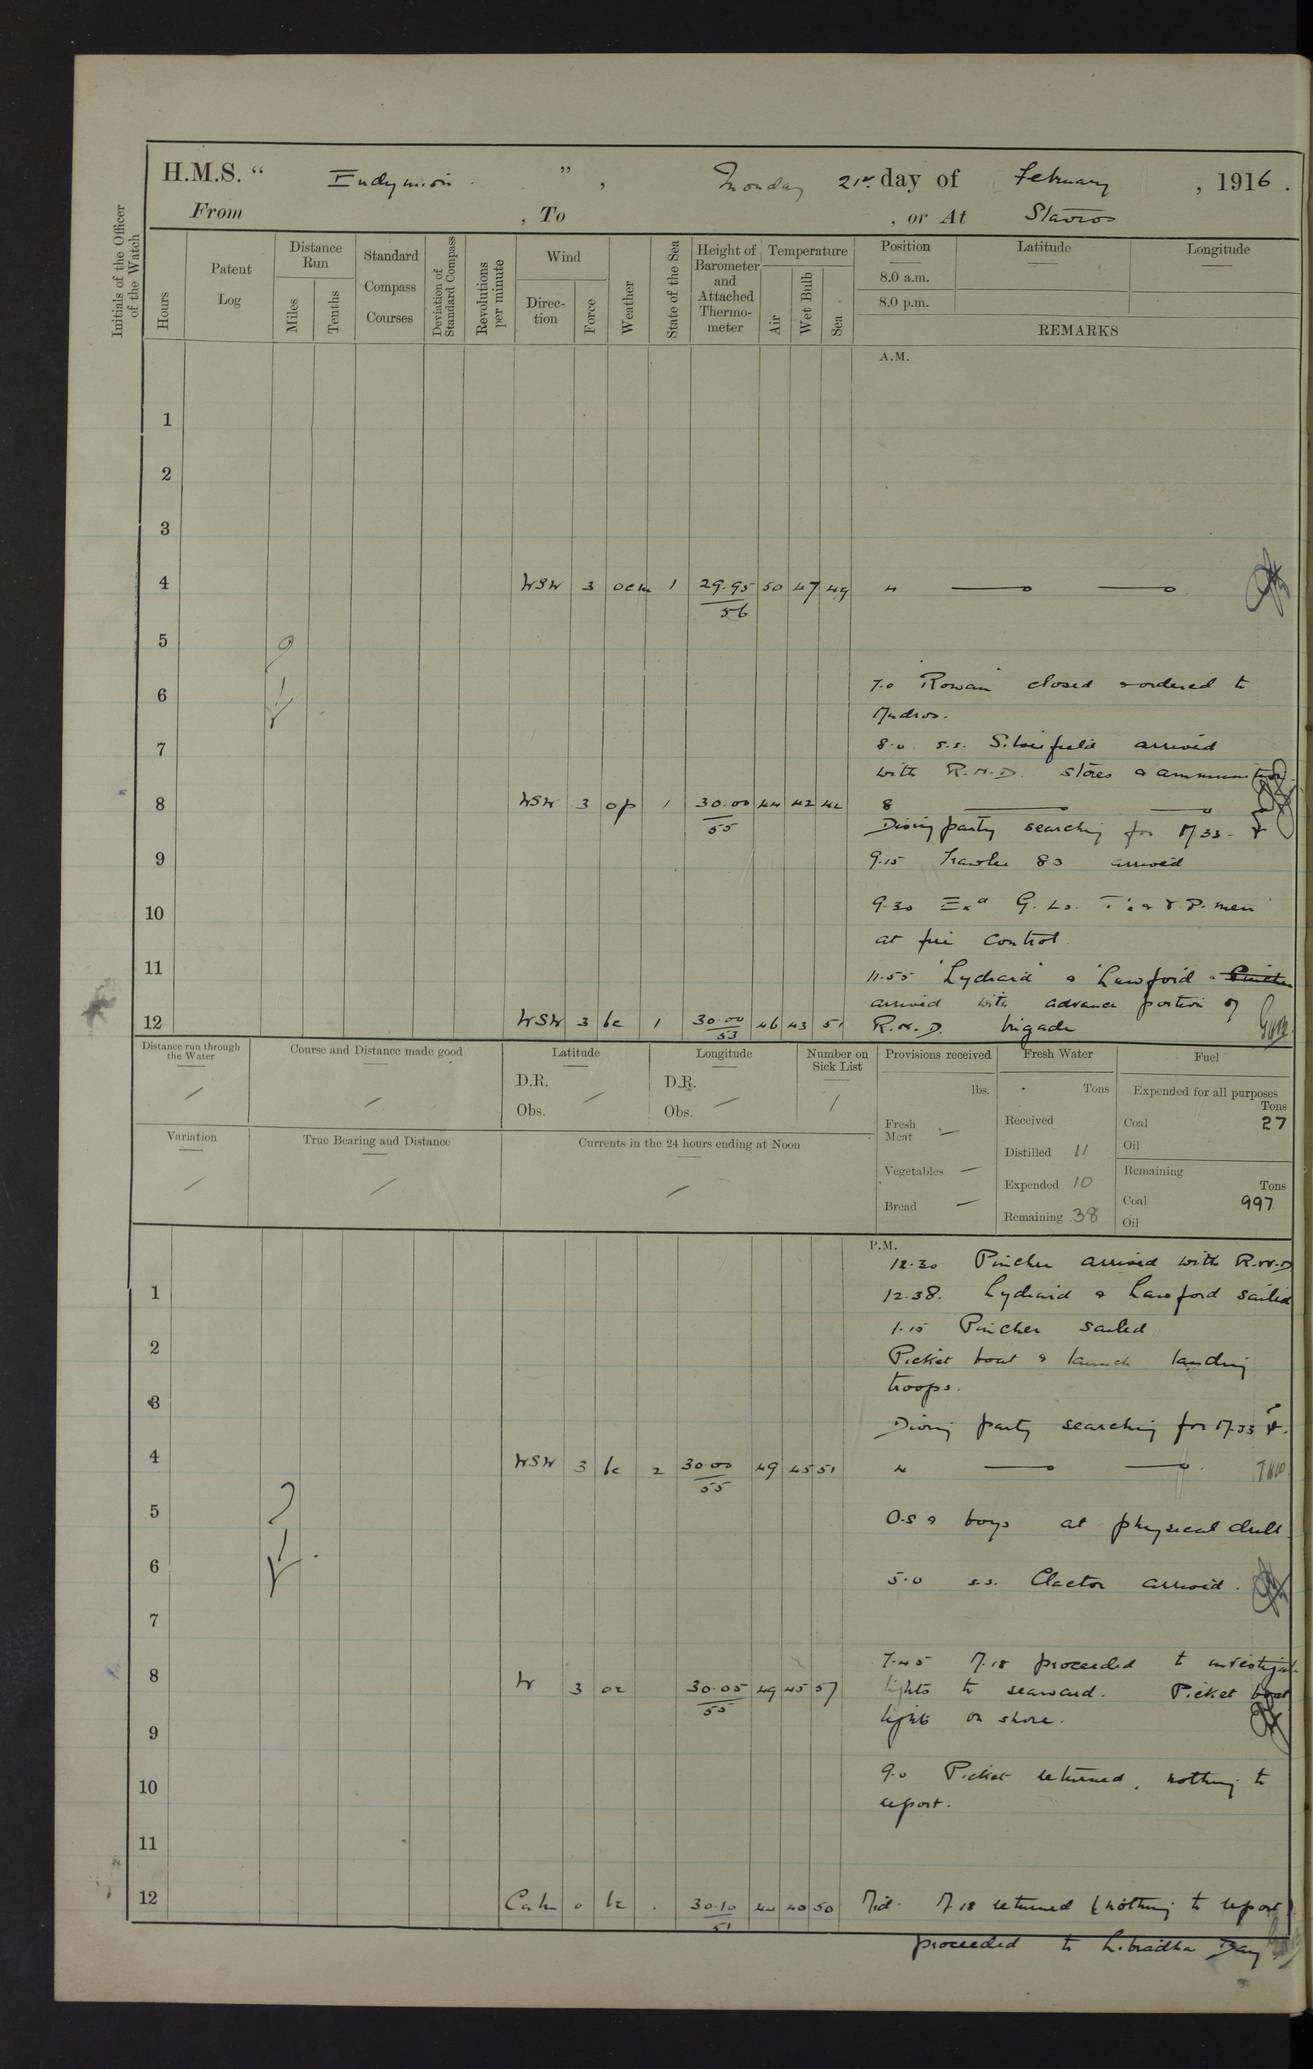 H.M.S. “ Endymion. ” , Monday 21st day of February , 1916.
From , To , or At Stavros
Initials of the Officer of the Watch
Hours
Patent Log
Distance Run
Miles
Tenths
Standard Compass Courses
Deviation of Standard Compass
Revolutions per minute
Wind
Direction
Force
Weather
State of the Sea
Height of Barometer and Attached Thermometer
Temperature
Air
Wet Bulb
Sea
Position
8.0 a.m.
8.0 p.m.
Latitude
Longitude
REMARKS
A.M.
1
2
3
4 WSW 3 ocm 1 29.95/56 50 47 49 4
5
6 7.0 "Rowan" closed & ordered to
Mudros.
7 8.0 s.s. Silverfield arrived
with R.N.D. stores & ammunition.
8 WSW 3 op 1 30.00/55 44 42 42 8
Diving party searching for M.33
9 9.15 Trawler 83 arrived
10 9.30 Exd G. Ls. & V.P. men
at fire control.
11 11.55 "Lychard" & "Lawford" & Pincher
arrived with advance portion of
12 WSW 3 bc 1 30.00/53 46 43 51 R.N.D. brigade
Distance run through the Water
Course and Distance made good
Latitude
D.R.
Obs.
Longitude
D.R.
Obs.
Number on Sick List
Provisions received
lbs.
Fresh Meat
Vegetables
Bread
Fresh Water
Tons
Received
Distilled 11
Expended 10
Remaining 38
Fuel
Expended for all purposes
Tons
Coal 27
Oil
Remaining
Tons
Coal 997
Oil
Variation
True Bearing and Distance
Currents in the 24 hours ending at Noon
P.M.
12.30 Pincher arrived with R.N.D
1 12.38. Lychard & Lawford sailed
1.15 Pincher sailed
2 Picket boat & launch landing
troops.
3 Diving party searching for M.33
4 WSW 3 bc 2 30.00/55 49 45 51 4
5 O.S & boys at physical drill.
6 5.0 s.s. Clacton arrived.
7 7.45 M.18 proceeded to investigate
8 W 3 oc 30.05/55 49 45 57 lights to seaward. Picket boat
lights on shore.
9
10 9.0 Picket returned, nothing to
report.
11
12 Calm 0 bc 30.10/51 44 40 50 Mid. M.18 returned (nothing to report)
proceeded to Libradha Bay